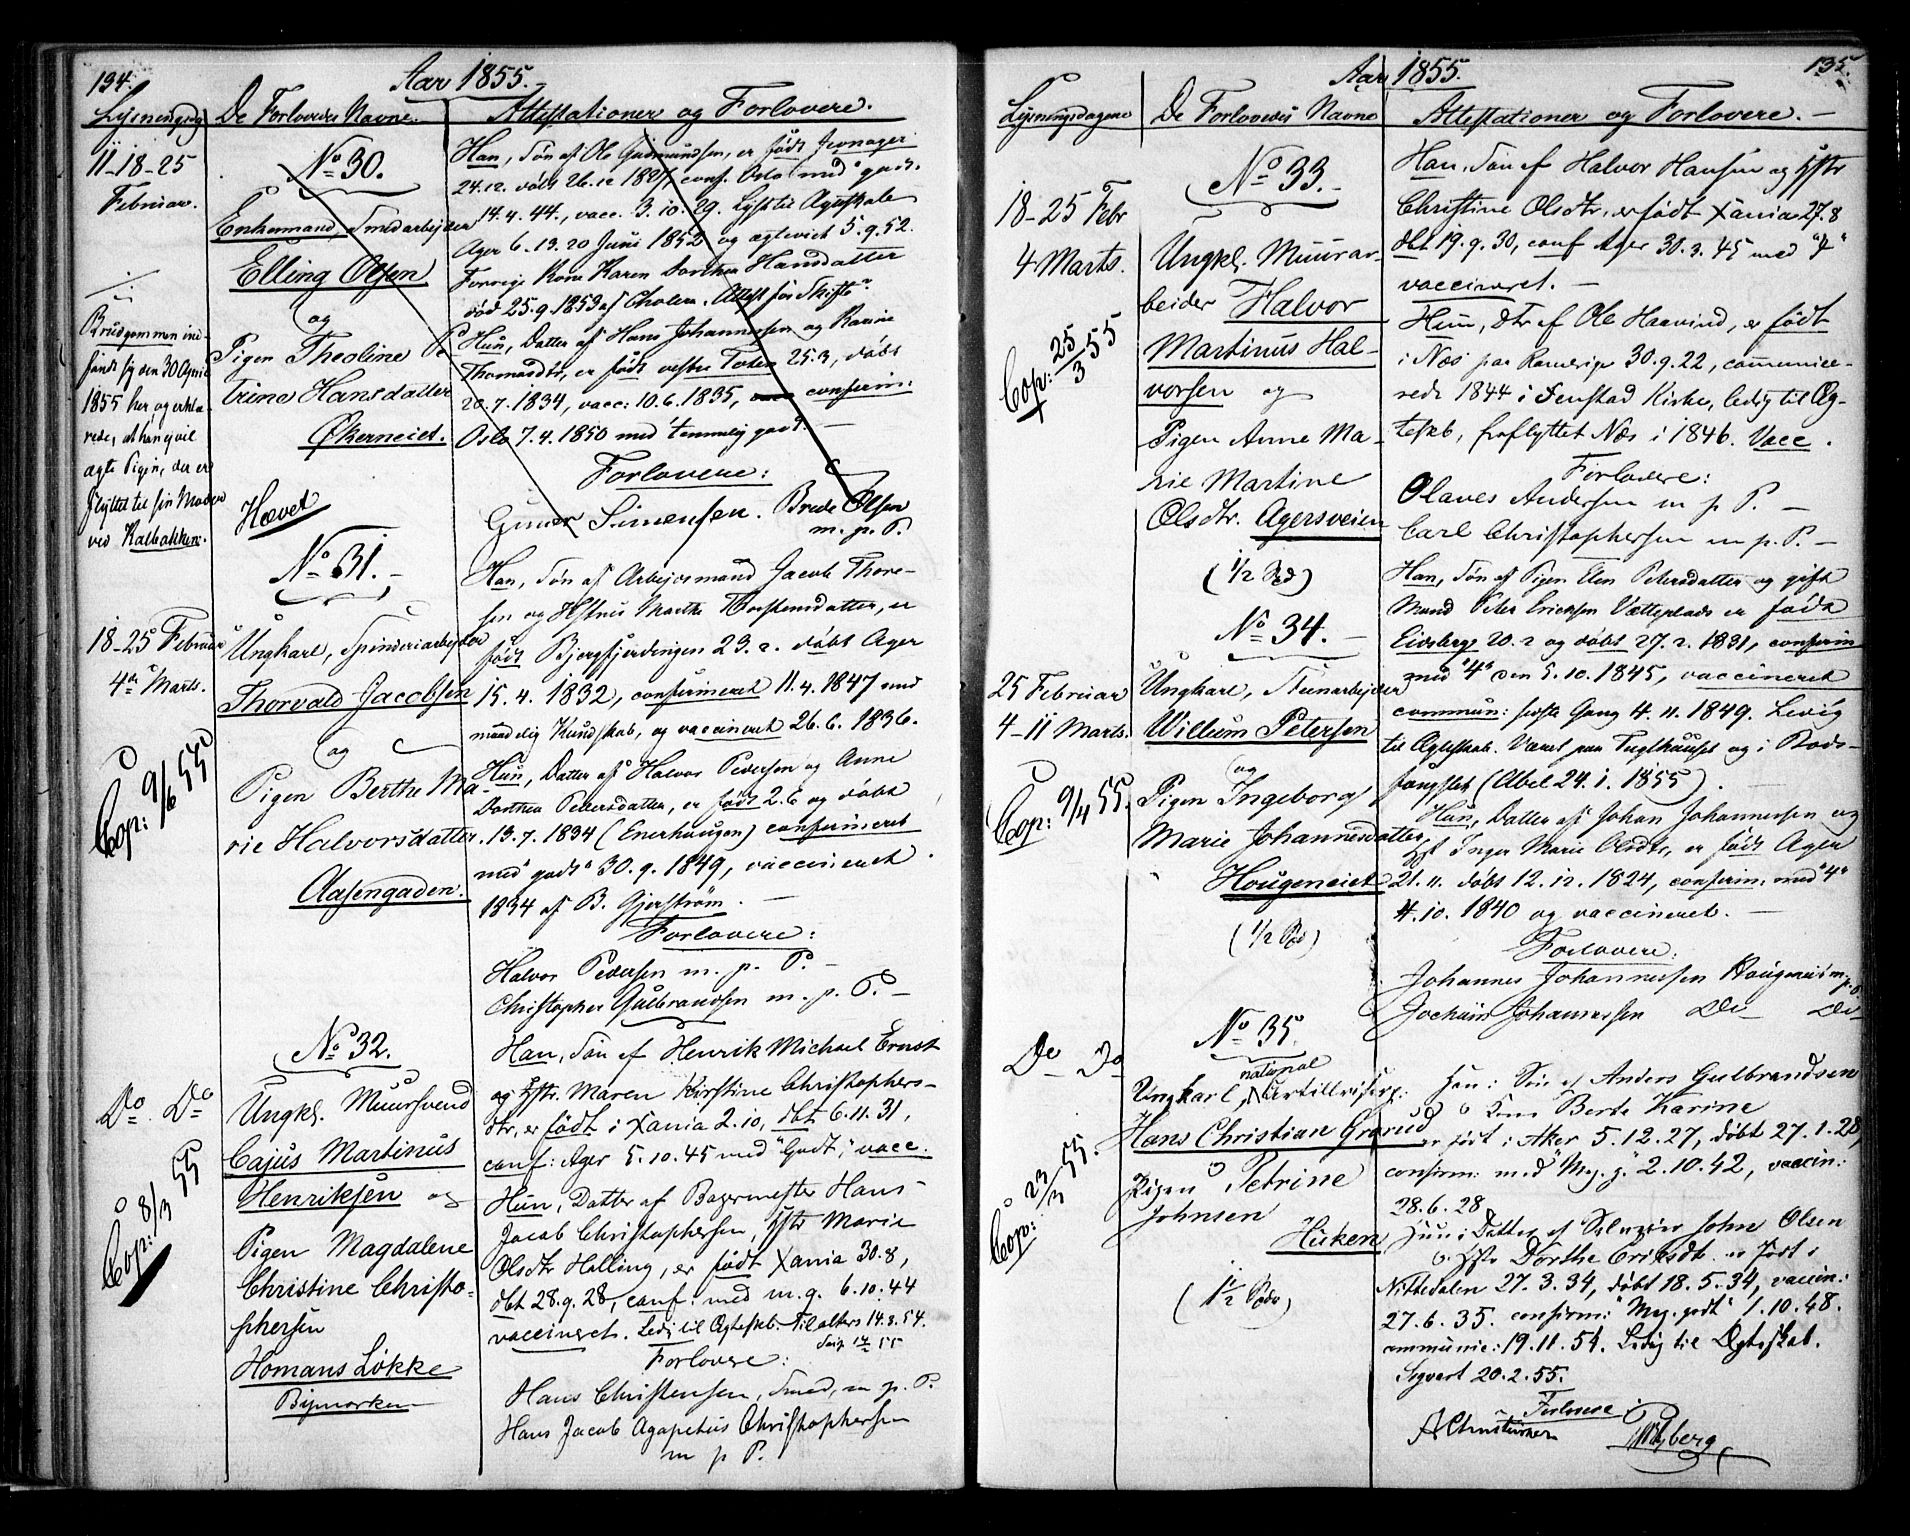 134.
Aar 1855.
Lysningsdag De Forlovedes Navne. Attestationer og Forlovere.
11-18-25
Februar.
No 30.
Enkemand, Smedarbejder
Elling Olsen
og
Pigen Theoline Pe
trine Hansdatter
Økerneiet.
Hævet
Han, Søn af Ole Gudmundsen, er født Jevnager
24.12. døbt 26.12 1827, conf. Oslo med "godt.
14.4.44., vacc. 3.10.29. Lyst til Ægteskab
Ager 6.13.20 Juni 1852 og ægteviet 5.9.52.
Forrige Kone Karen Dorthea Hansdatter
død 25.9.1853 af Cholera. Attest for Skifte.
Hun, Datter af Hans Johannessen og Karine
Thomasdtr, er født vestre Toten 25.3, døbt
20.7.1834, vacc: 10.6.1835, confirm:
Oslo 7.4.1850 med temmelig godt. —
Forlovere:
Gunar Simensen. Brede Olsen
m. p. P.
Brudgommen ind-
fandt sig den 30 April
1855 her, og erklæ-
rede, at han ej vil
ægte Pigen, der er
flyttet til sin Moder
ved Kalbakken.
No 31.
18-25 Februar
4de Marts.
Cop: 9/6 55
Ungkarl, Spinderiarbejder
Thorvald Jacobsen
og
Pigen Berthe Ma-
rie Halvorsdatter.
Aasengaden.
Han, Søn af Arbejdsmand Jacob Thore-
sen og Hstru Marthe Thorstensdatter, er
født Bjergfjerdingen 23.2. døbt Ager
15.4.1832, confirmeret 11.4.1847 med
maadelig Kundskab, og vaccineret 26.6.1836.
Hun, Datter af Halvor Pedersen og Anne
Dorthea Petersdatter, er født 2.6 og døbt
13.7.1834 (Enerhaugen) confirmeret
med "godt" 30.9.1849, vaccineret
1834 af B. Gjerstrøm. —
Forlovere:
Halvor Pedersen m. p. P. —
Christopher Gulbrandsen m. p. P. —
No 32.
Do. Do
Cop: 8/3 55
Ungkl. Muursvend
Cajus Martinus
Henriksen og
Pigen Magdalene
Christine Christo-
phersen
Homans Løkke
Bymarken
Han, Søn af Henrik Michael Ernst
og Hstr. Maren Kirstine Christophers-
dtr, er født i Xania 2.10, dbt 6.11.31,
conf: Ager 5.10.45 med "Godt", vacc.
Hun, Datter af Bagermester Hans
Jacob Christophersen, Hstr Marie
Olsdtr Helling, er født Xania 30.8,
dbt 28.9.28, conf: med m.g. 6.10.44
vaccineret. Ledig til Ægteskb. Til alters 14.3.54.
Forlovere:
Hans Christensen, Smed, m p. P.
Hans Jacob Agapetus Christophersen
m p P.
135.
Aar 1855.
Lysningsdagene De Forlovedes Navne Attestationer og Forlovere. —
No 33.
18-25 Febr
4 Marts.
Cop: 25/3 55
Ungkl. Muurar-
beider Halvor
Martinus Hal-
vorsen og
Pigen Anne Ma-
rie Martine
Olsdtr. Agersveien
(1/2 Rd)
Han, Søn af Halvor Hansen og Hstr
Christine Olsdtr. er født Xania 27.8
dbt 19.9.30, conf Ager 30.3.45 med "4"
vaccineret. —
Hun, dtr af Ole Haavind, er født
i Næs paa Romerige 30.9.22, communice-
rede 1844 i Fenstad Kirke, ledig til Æg-
teskb, fraflyttet Næs i 1846. Vacc.
Forlovere:
Olaves Andersen m p. P. —
Carl Christophersen m p. P. —
No 34.
25 Februar
4-11 Marts.
Cop: 9/4 55.
Ungkarl, Steenarbejder
Willum Petersen
og
Pigen Ingeborg
Marie Johannesdatter
Hougeneiet
(1/2 Rd)
Han, Søn af Pigen Elen Petersdatter og gift
Mand Peter Ericksen Vætteplads er født
Eidsberg 20.2 og døbt 27.2.1831, confirm
med "4" den 5.10.1845, vaccineret
commun: første Gang 4.11.1849. Ledig
til Ægteskab. Været paa Tugthuuset og i Bods-
fængslet (Abel 24.1.1855).
Hun, Datter af Johan Johannessen og
Hst Inger Marie Olsdtr, er født Ager
21.11. døbt 12.12.1824, confirm: med "4"
4.10.1840 og vaccineret. —
Forlovere:
Johannes Johannessen Hougeneiet m. p. P.
Jochum Johannessen Do Do
No 35.
Do Do
Cop: 23/3 55.
national
Ungkarl, Artillerist:
Hans Christian Grorud
o
Pigen Petrine
Johnsen
Hicken
(1 1/2 Rd)
Han: Søn af Anders Gulbrandsen
o Kone Berte Karine
er født i Aker 5.12.27, døbt 27.1.28,
confirm: med "Meg. g." 2.10.42, vaccin:
28.6.28
Hun: Datter af John Olsen
o Hstr Dorthe Eriksdt. er født i
Nittedalen 27.3.34, døbt 18.5.34, vaccin:
27.6.35. confirm: "Meg. godt" 1.10.48.
communic: 19.11.54. Ledig til Ægteskab.
20.2.55.
Forlovere